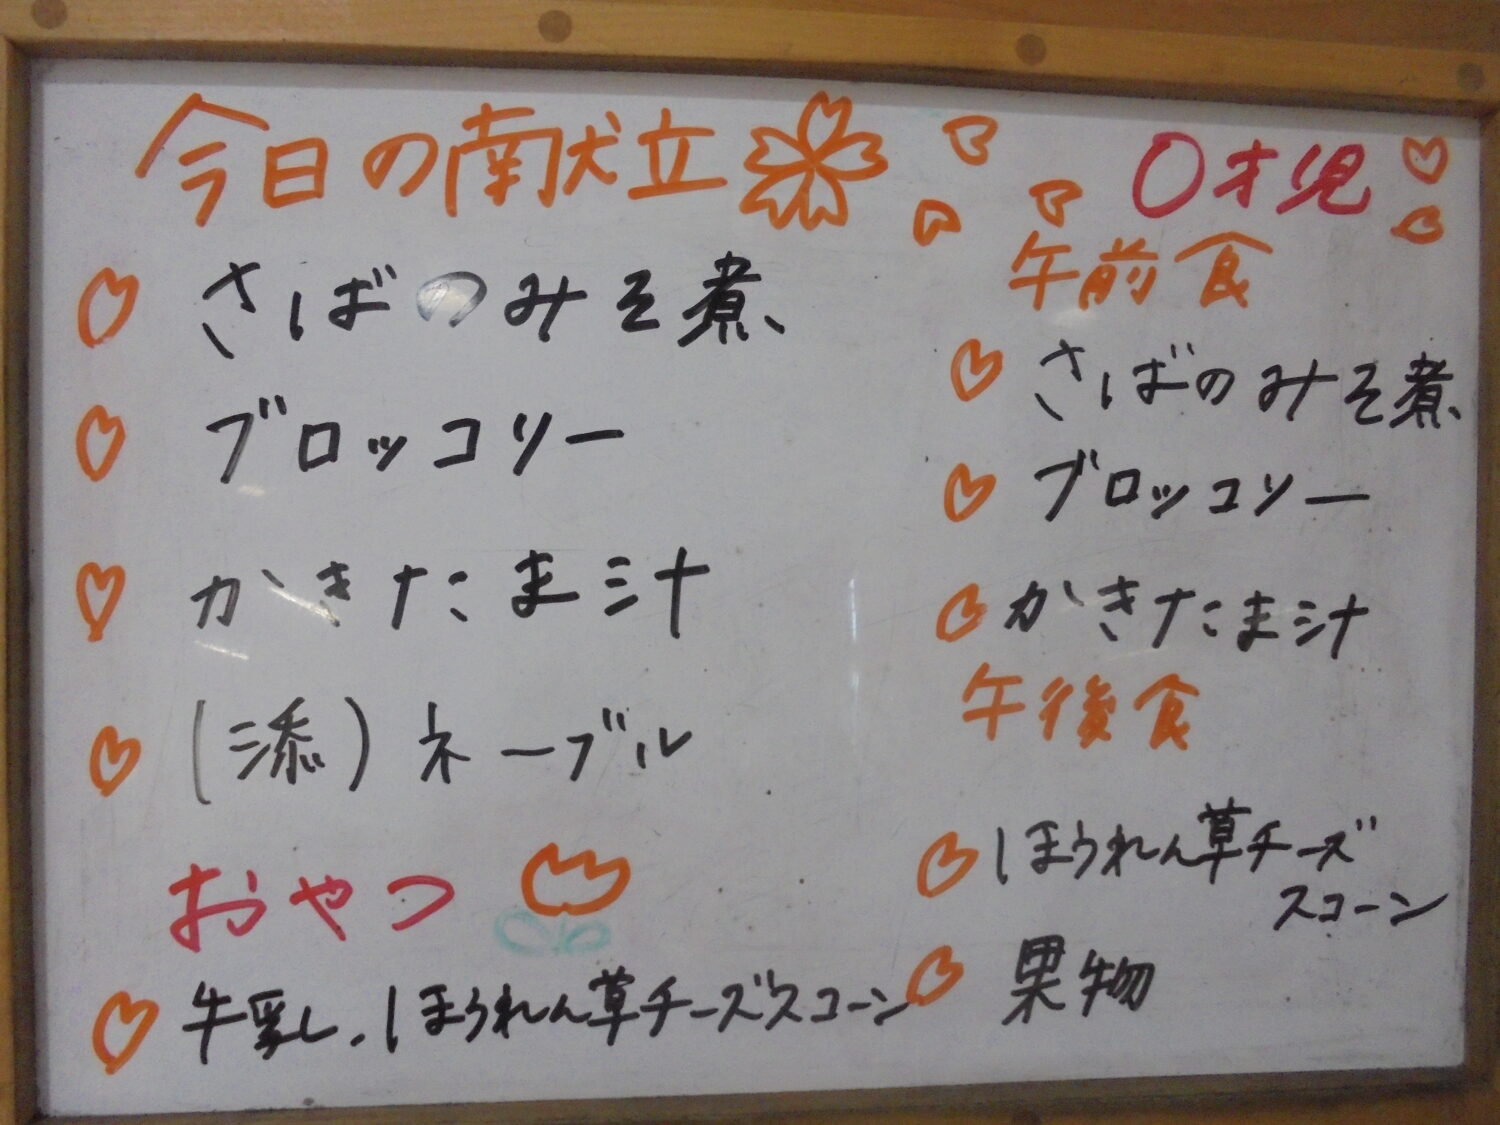 今日の献立
さばのみそ煮
ブロッコリー
かきたま汁
(添)ネーブル
おやつ
牛乳.ほうれん草チーズスコーン
0才児
午前食
さばのみそ煮
ブロッコリー
かきたま汁
午後食
ほうれん草チーズ
スコーン
果物